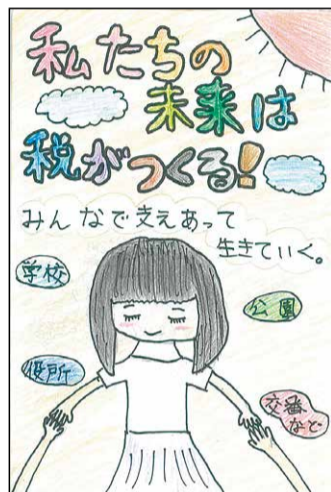 私たちの
未来は
税がつくる!
みんなで支えあって
生きていく。
学校
公園
役所
交番
など